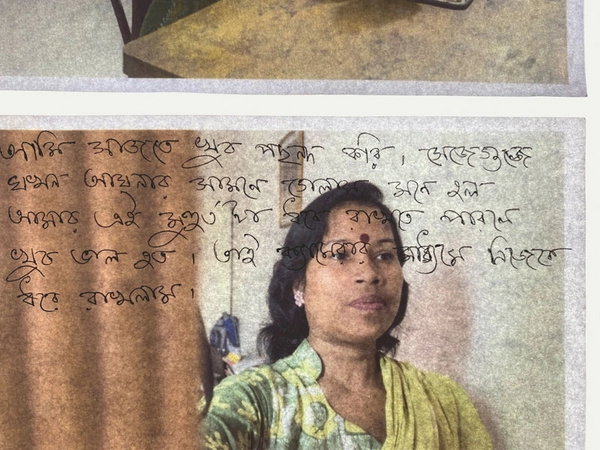 আমি সাজতে খুব পছন্দ করি, সেজেগুজে
যখন আয়নার সামনে গেলাম মনে হল
আমার এই মুহূর্ত টা ধরে রাখতে পারলে
খুব ভাল হত। তাই ক্যামেরার মাধ্যমে নিজেকে
ধরে রাখলাম।